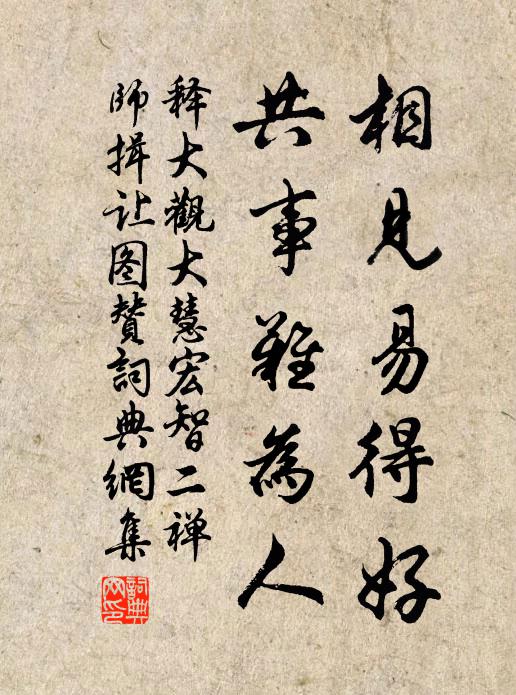 相見易得好
共事難為人
释大觀大慧宏智二禅
師揖让图赞詞典網集
詞典
网印